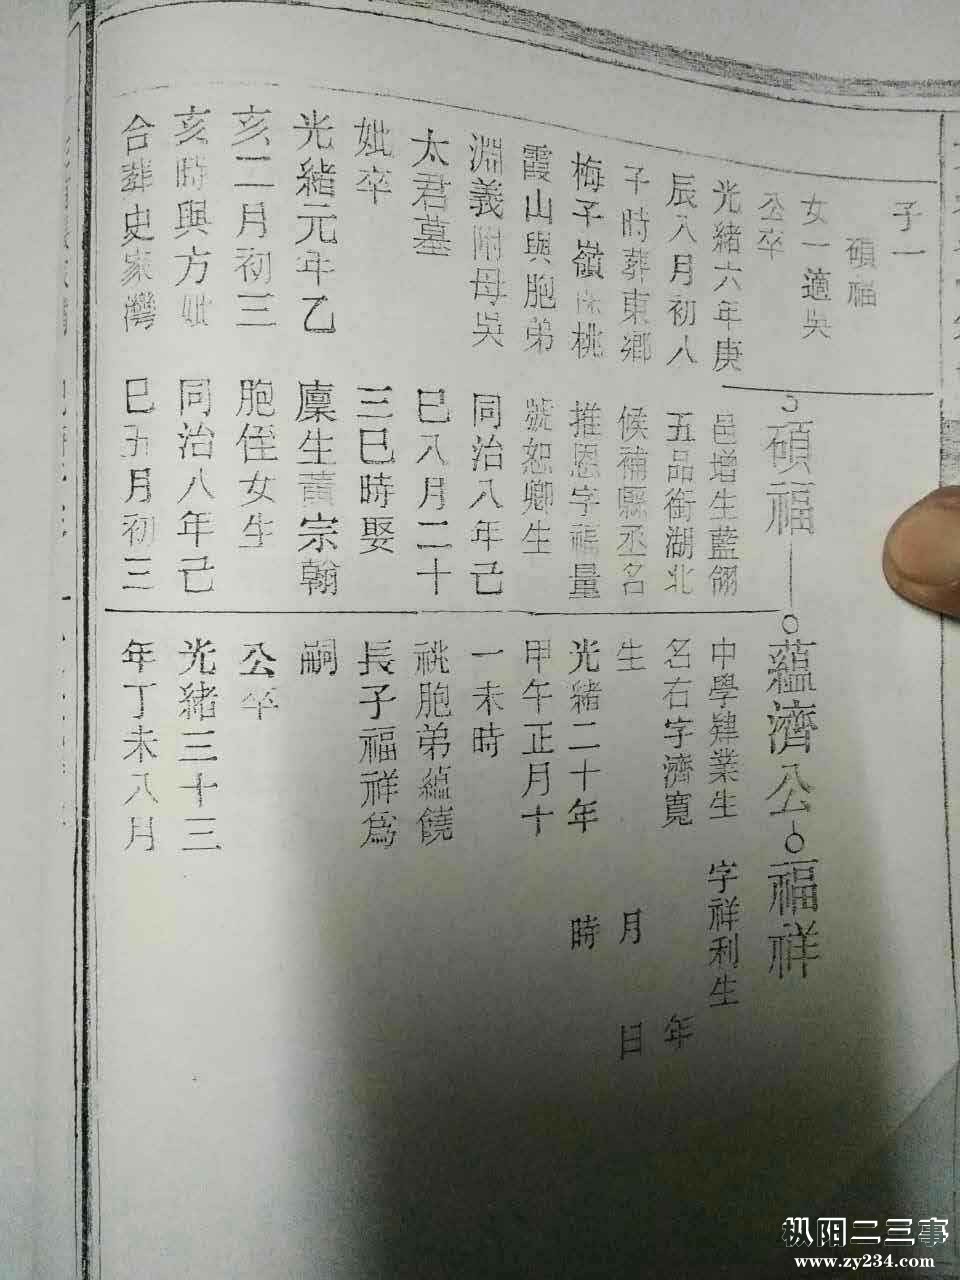 子一
碩福
女一適吳
公卒
光緒六年庚
辰八月初八
子時葬東鄉
梅子嶺
桃
霞山與胞弟
淵義附母吳
太君墓
妣卒
光緒元年乙
亥二月初三
亥時與方妣
合葬史家灣
碩福
邑增生藍翎
五品銜湖北
候補縣丞名
推恩字福量
號恕卿生
同治八年己
巳八月二十
三巳時娶
廩生黃宗翰
胞侄女生
同治八年己
巳五月初三
蘊濟公
中學肄業生
名右字濟寬
生
光緒二十年
甲午正月十
一未時
祧胞弟蘊饒
長子福祥為
嗣
公卒
光緒三十三
年丁未八月
福祥
字祥利生
年
月
日
時
枞阳二三事
www.zy234.com